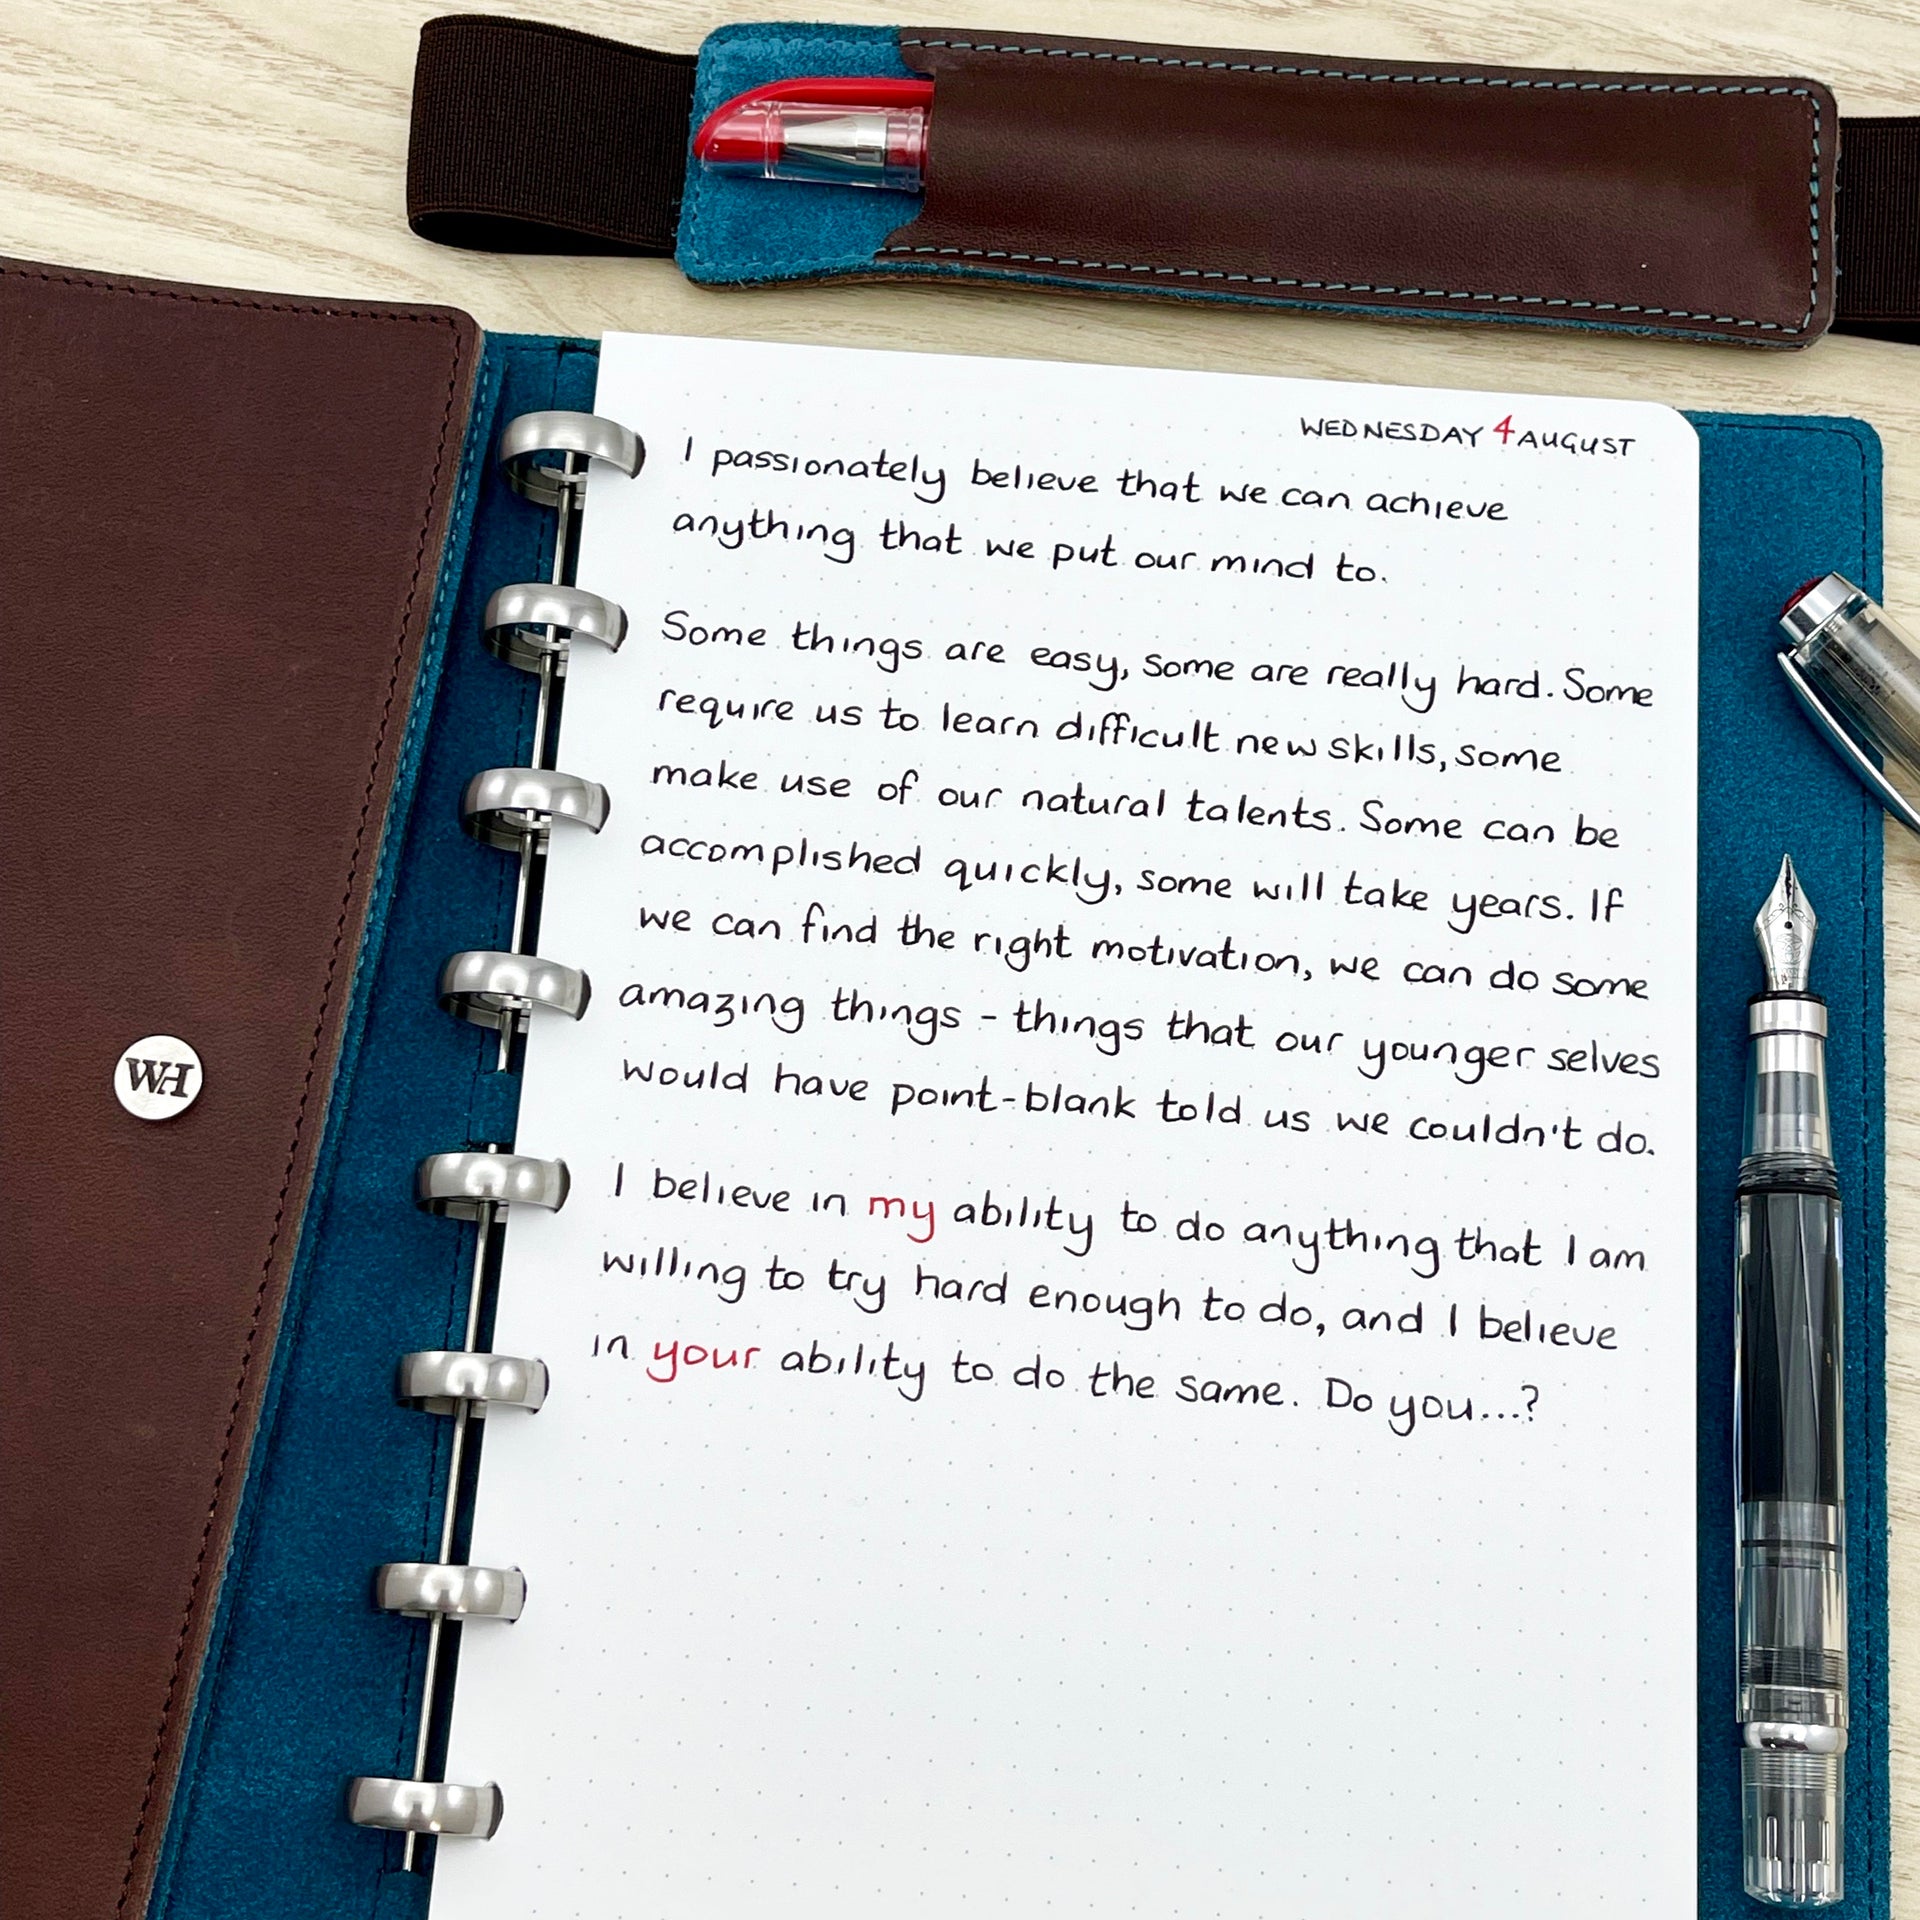 WEDNESDAY 4 AUGUST
I passionately believe that we can achieve
anything that we put our mind to.
Some things are easy, some are really hard. Some
require us to learn difficult new skills, some
make use of our natural talents. Some can be
accomplished quickly, some will take years. If
we can find the right motivation, we can do some
amazing things - things that our younger selves
would have point-blank told us we couldn't do.
I believe in my ability to do anything that I am
willing to try hard enough to do, and I believe
in your ability to do the same. Do you...?
WH